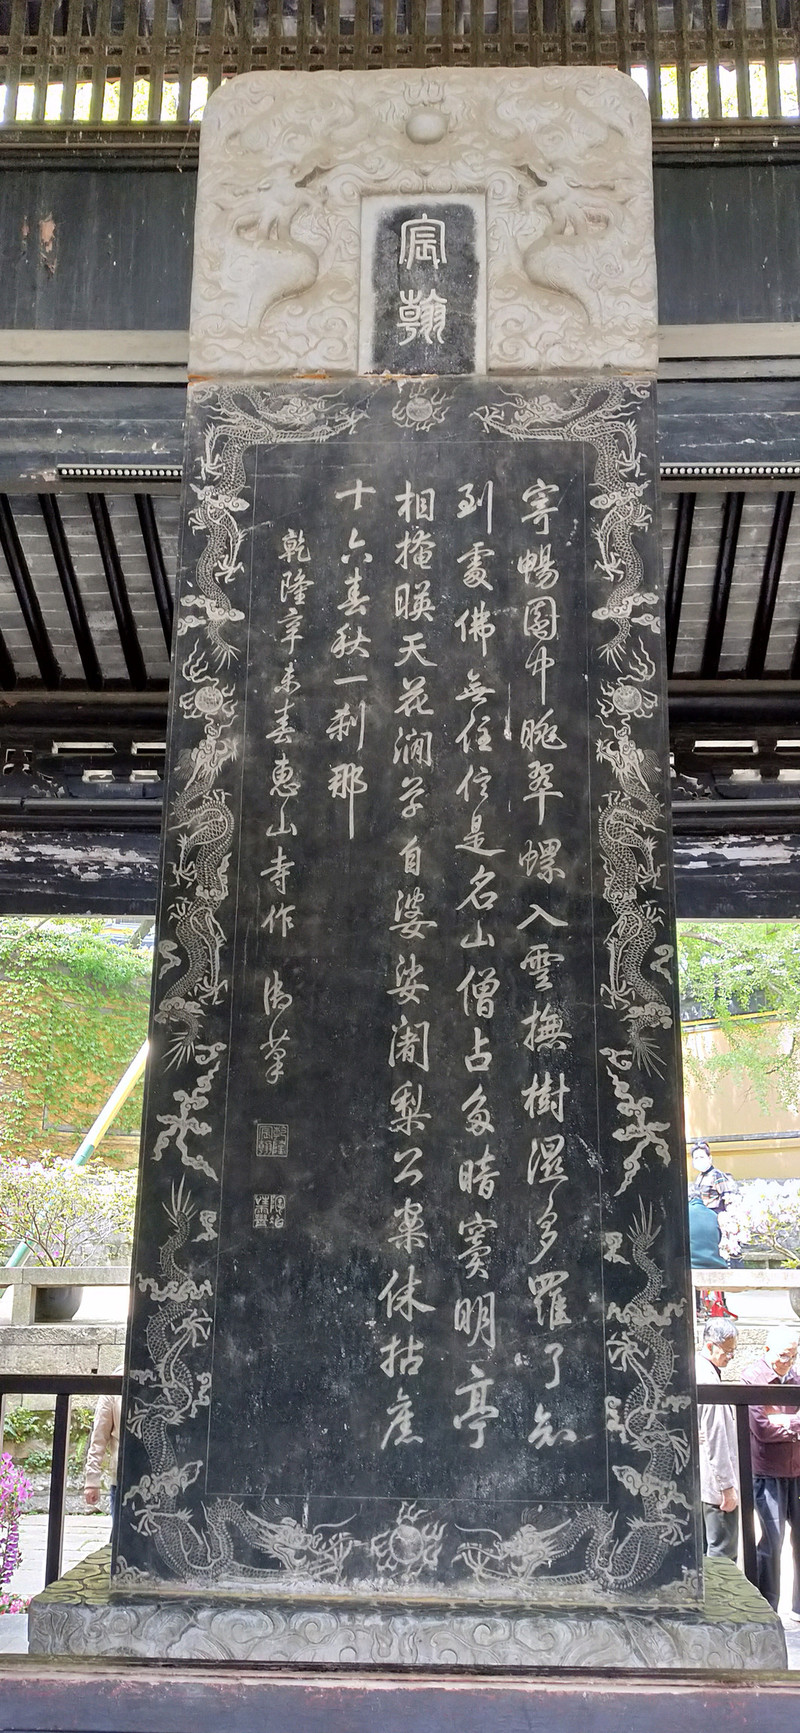 宸翰
寄暢園中眺翠螺入雲撫樹濕多羅了知
到處佛無住信是名山僧占多暗竇明亭
相掩暎天花澗草自婆娑闍梨公案休拈舊
十六春秋一剎那
乾隆辛未春惠山寺作 御筆
乾隆宸翰